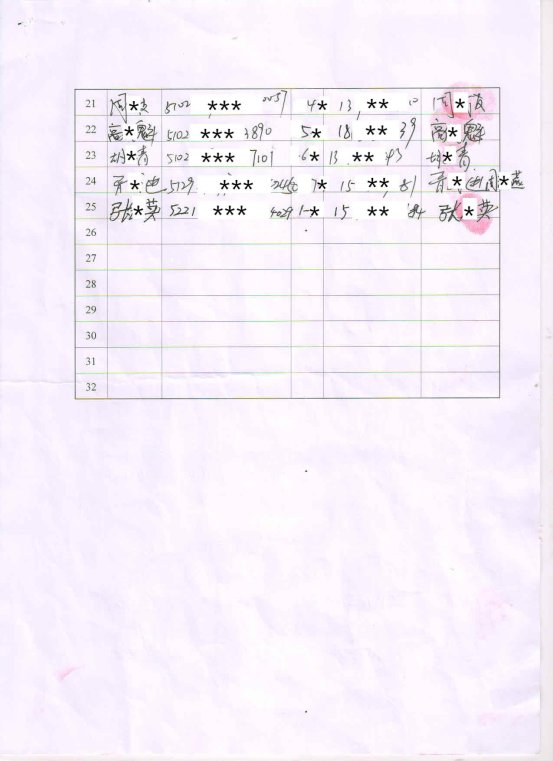 21 周* 5102 *** 2057 4* 13 ** 10 周*
22 高*魁 5102 *** 3890 5* 18 ** 39 高*魁
23 胡*青 5102 *** 7101 6* 13 ** 43 胡*青
24 * 5129 *** 7* 15 ** 81 * 周*燕
25 张*英 5221 *** 4029 1-* 15 ** 84 张*英
26
27
28
29
30
31
32